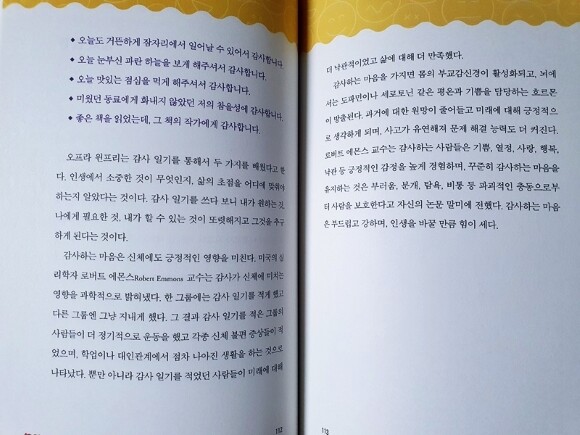 ◆ 오늘도 거뜬하게 잠자리에서 일어날 수 있어서 감사합니다.
◆ 오늘 눈부신 파란 하늘을 보게 해주셔서 감사합니다.
◆ 오늘 맛있는 점심을 먹게 해주셔서 감사합니다.
◆ 미웠던 동료에게 화내지 않았던 저의 참을성에 감사합니다.
◆ 좋은 책을 읽었는데, 그 책의 작가에게 감사합니다.
오프라 윈프리는 감사 일기를 통해서 두 가지를 배웠다고 한
다. 인생에서 소중한 것이 무엇인지, 삶의 초점을 어디에 맞춰야
하는지 알았다는 것이다. 감사 일기를 쓰다 보니 내가 원하는 것,
나에게 필요한 것, 내가 할 수 있는 것이 또렷해지고 그것을 추구
하게 된다는 것이다.
감사하는 마음은 신체에도 긍정적인 영향을 미친다. 미국의 심
리학자 로버트 에몬스Robert Emmons 교수는 감사가 신체에 미치는
영향을 과학적으로 밝혀냈다. 한 그룹에는 감사 일기를 적게 했고
다른 그룹엔 그냥 지내게 했다. 그 결과 감사 일기를 적은 그룹의
사람들이 더 정기적으로 운동을 했고 각종 신체 불편 증상들이 적
었으며, 학업이나 대인관계에서 점차 나아진 생활을 하는 것으로
나타났다. 뿐만 아니라 감사 일기를 적었던 사람들이 미래에 대해
112
더 낙관적이었고 삶에 대해 더 만족했다.
감사하는 마음을 가지면 몸의 부교감신경이 활성화되고, 뇌에
서는 도파민이나 세로토닌 같은 평온과 기쁨을 담당하는 호르몬
이 방출된다. 과거에 대한 원망이 줄어들고 미래에 대해 긍정적으
로 생각하게 되며, 사고가 유연해져 문제 해결 능력도 더 커진다.
로버트 에몬스 교수는 감사하는 사람들은 기쁨, 열정, 사랑, 행복,
낙관 등 긍정적인 감정을 높게 경험하며, 꾸준히 감사하는 마음을
유지하는 것은 부러움, 분개, 탐욕, 비통 등 파괴적인 충동으로부
터 사람을 보호한다고 자신의 논문 말미에 전했다. 감사하는 마음
은 부드럽고 강하며, 인생을 바꿀 만큼 힘이 세다.
113